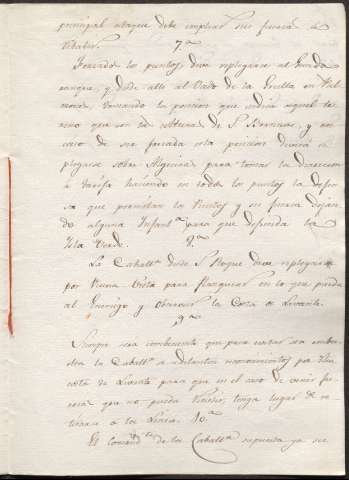 principal ataque debe emplear sus fuerzas
7.ª
Forzados los puntos deve replegarse al Guada
rranque, y desde alli al Vado de la Grulla en Pal
mones, tomando la posicion que indica aquel te
rreno que son las Alturas de S. Bernave, y en
caso de ser forzada esta posicion devera re
plegarse sobre Algeciras para tomar la direccion
á Tarifa haciendo en todos los puntos la defen
sa que permitan los Puntos y su fuerza dejan
do alguna Infant.ª para que defienda la
Isla Verde.
8.ª
La Caball.ª desde S. Roque deve replegarse
por Buena Vista para flanquear en lo que pueda
al Enemigo y observar la Costa de Levante.
9.ª
Siempre sera combeniente que para evitar un embos
la Caball.ª adelante reconocimientos por la
costa de Levante para que en el caso de venir fu
erzas que no pueda tenga lugar de re
tirarse a los Linea. 10.ª
El Comand.te de la Caball.ª supuesto ya se